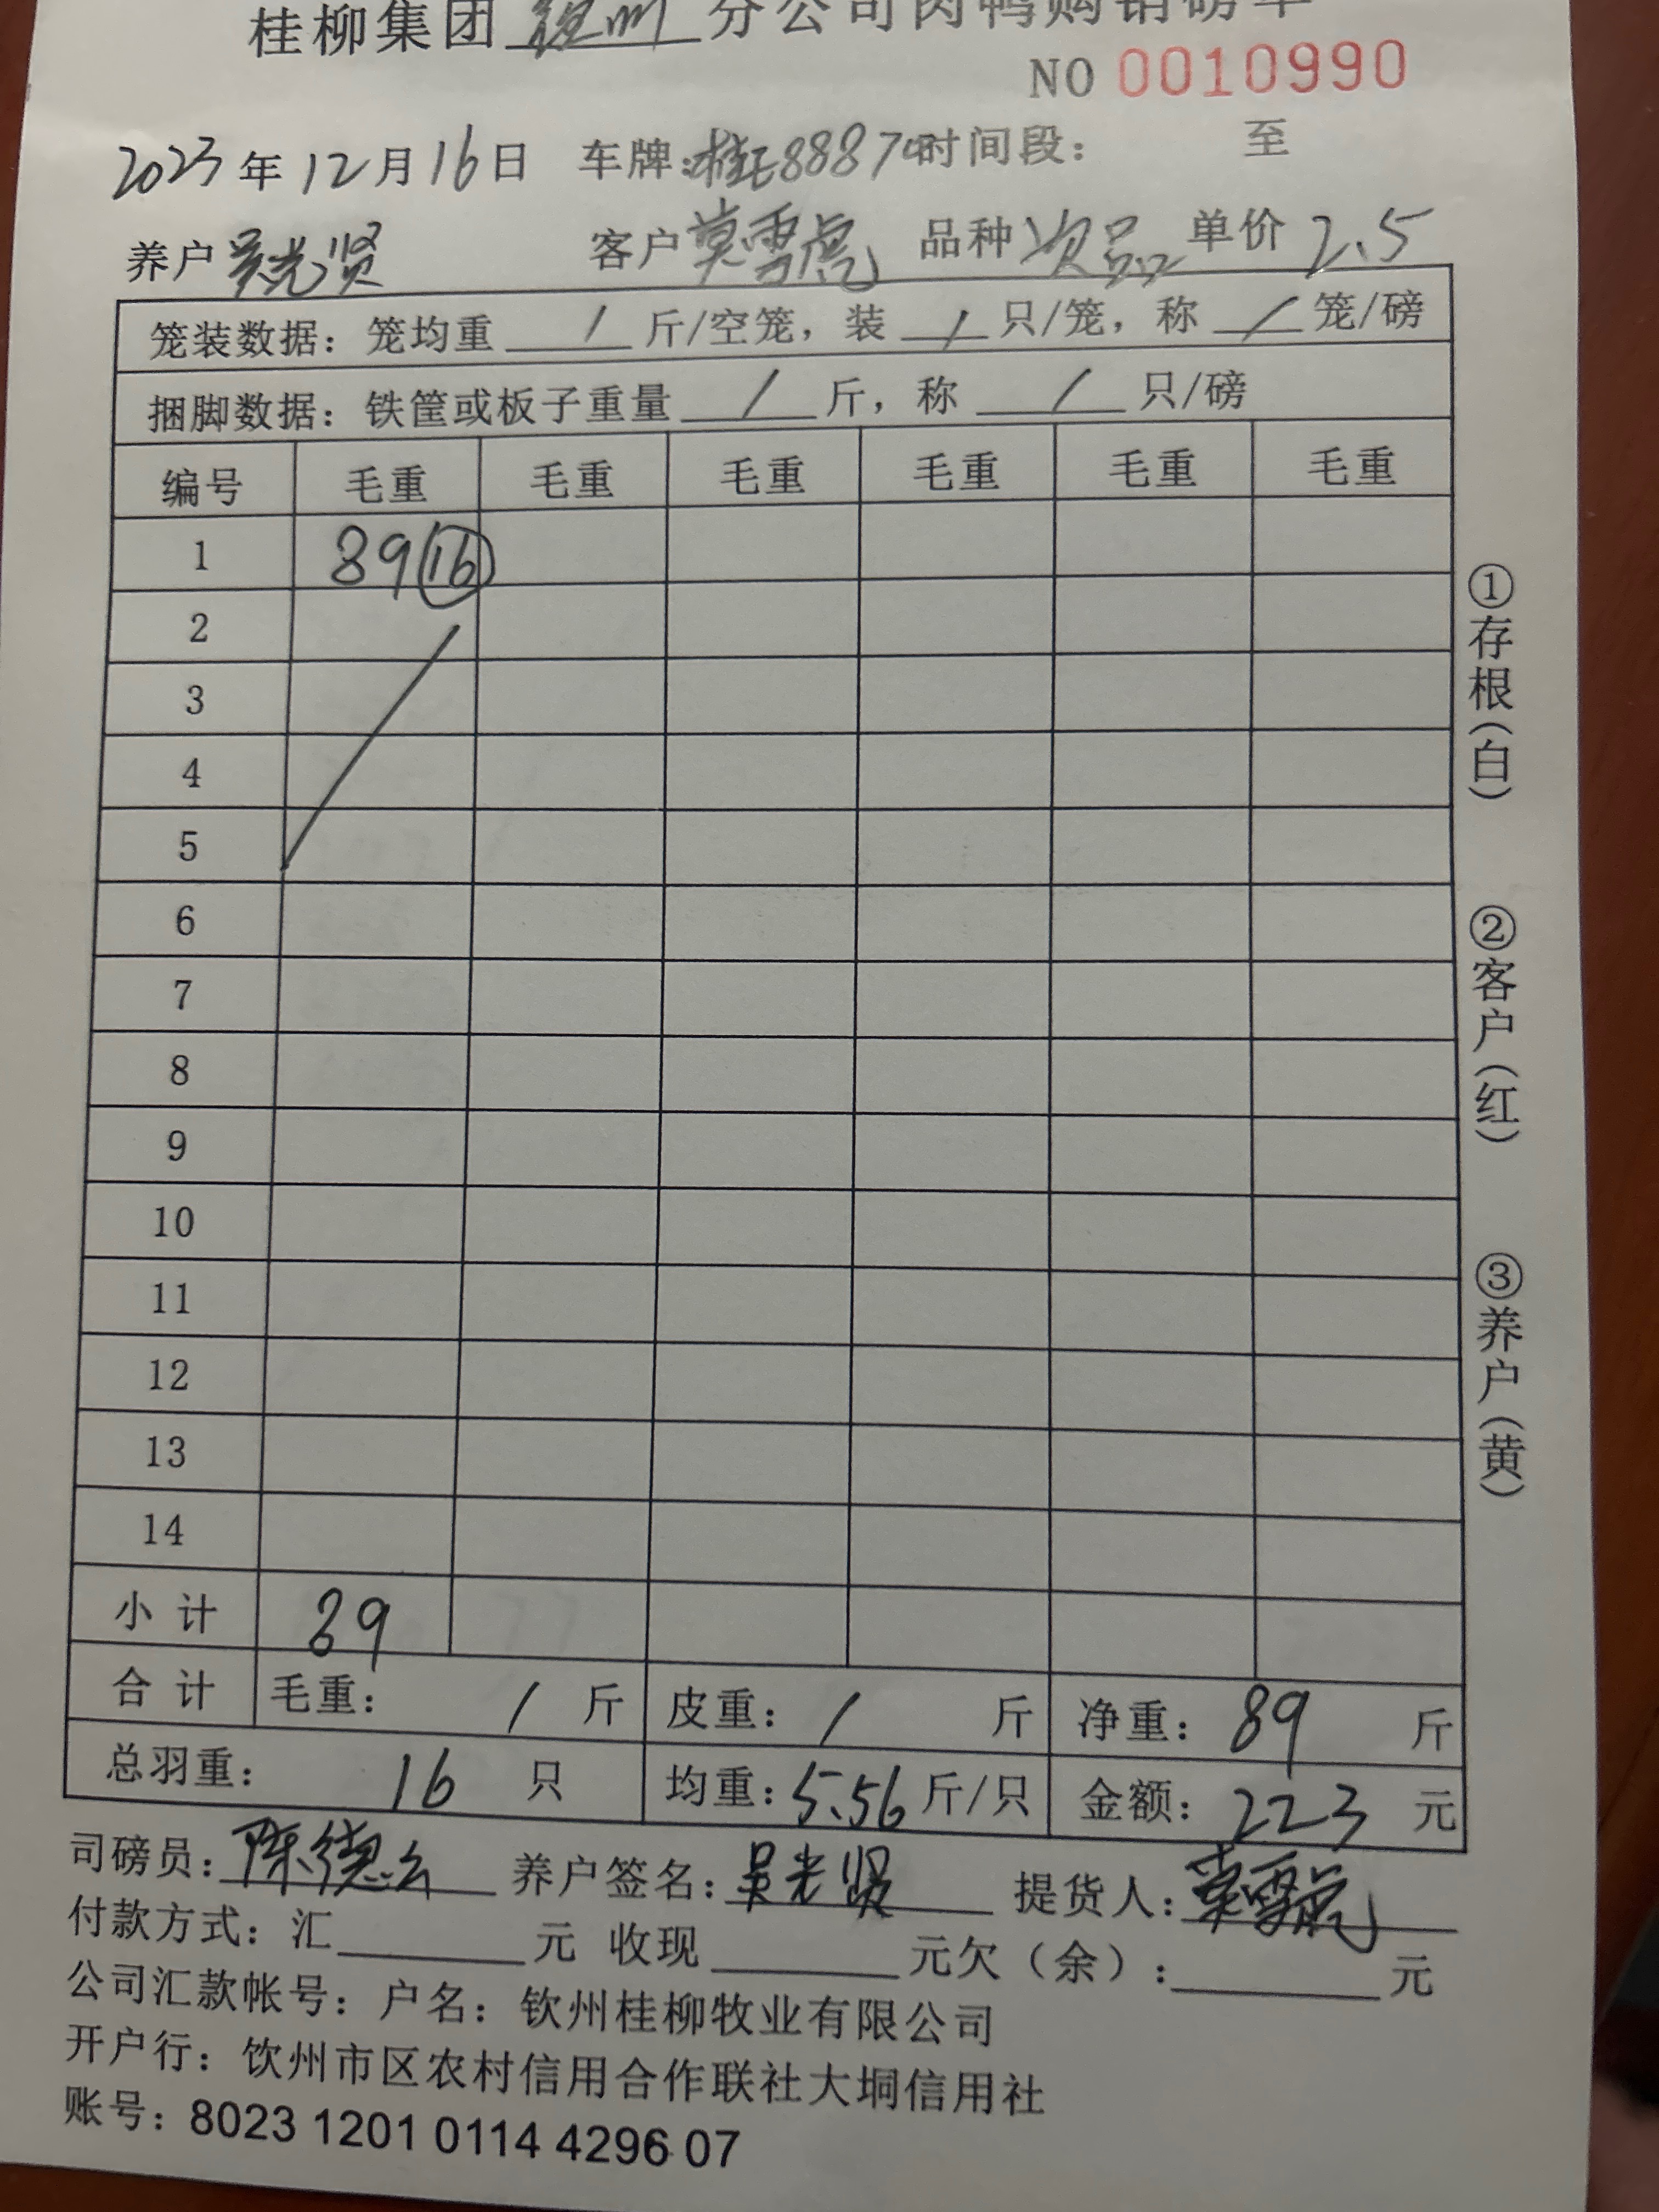 桂柳集团钦州分公司肉鸭购销磅单
NO 0010990
2023年12月16日 车牌: 8887 时间段: 至
养户 吴光贤 客户 莫雪虎 品种 次品 单价 2.5
笼装数据: 笼均重 / 斤/空笼, 装 / 只/笼, 称 / 笼/磅
捆脚数据: 铁筐或板子重量 / 斤, 称 / 只/磅
编号 毛重 毛重 毛重 毛重 毛重 毛重
1 89 ⑯
2
3
4
5
6
7
8
9
10
11
12
13
14
小计 89
合计 毛重: / 斤 皮重: / 斤 净重: 89 斤
总羽重: 16 只 均重: 5.56 斤/只 金额: 223 元
司磅员: 陈德 养户签名: 吴光贤 提货人: 莫雪虎
付款方式: 汇 元 收现 元欠(余): 元
公司汇款帐号: 户名: 钦州桂柳牧业有限公司
开户行: 钦州市区农村信用合作联社大垌信用社
账号: 8023 1201 0114 4296 07
①存根(白)
②客户(红)
③养户(黄)